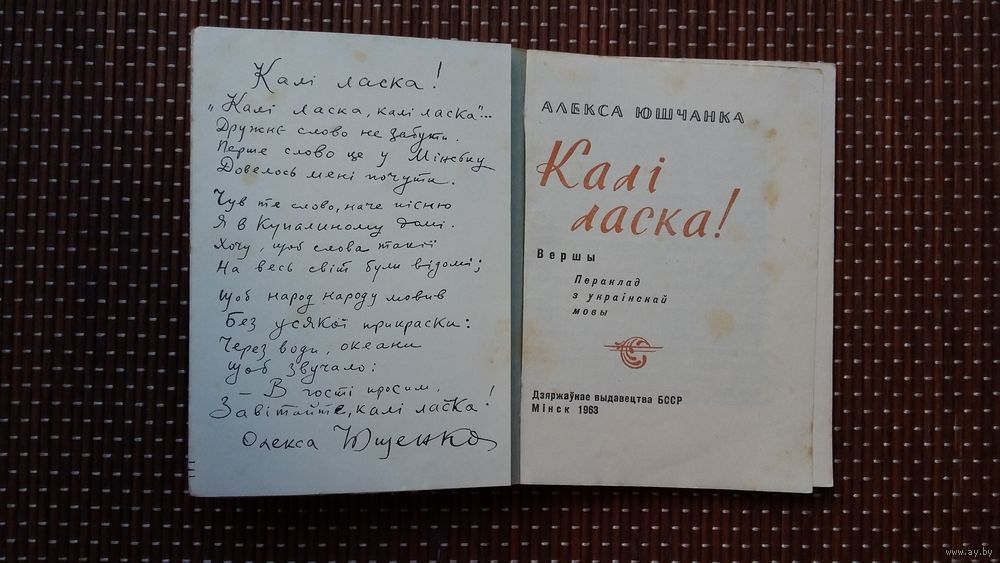 Калі ласка!
„Калі ласка, калі ласка"...
Дружнє слово не забути.
Перше слово це у Мінську
Довелось мені почути.
Чув те слово, наче пісню
Я в Купалиному домі.
Хочу, щоб слова такії
На весь світ були відомі;
Щоб народ народу мовив
Без усякої прикраски:
Через води, океани
Щоб звучало:
– В гості просим,
Завітайте, калі ласка!
Олекса Ющенко
АЛЕКСА ЮШЧАНКА
Калі
ласка!
Вершы
Пераклад
з украінскай
мовы
Дзяржаўнае выдавецтва БССР
Мінск 1963
www.ay.by